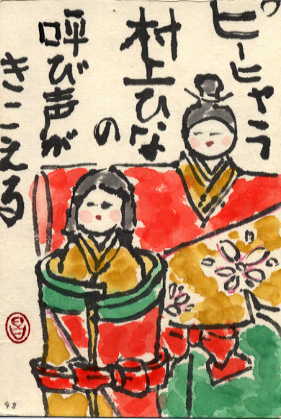 ピーヒャラ
村上ひな
の
呼び声が
きこえる